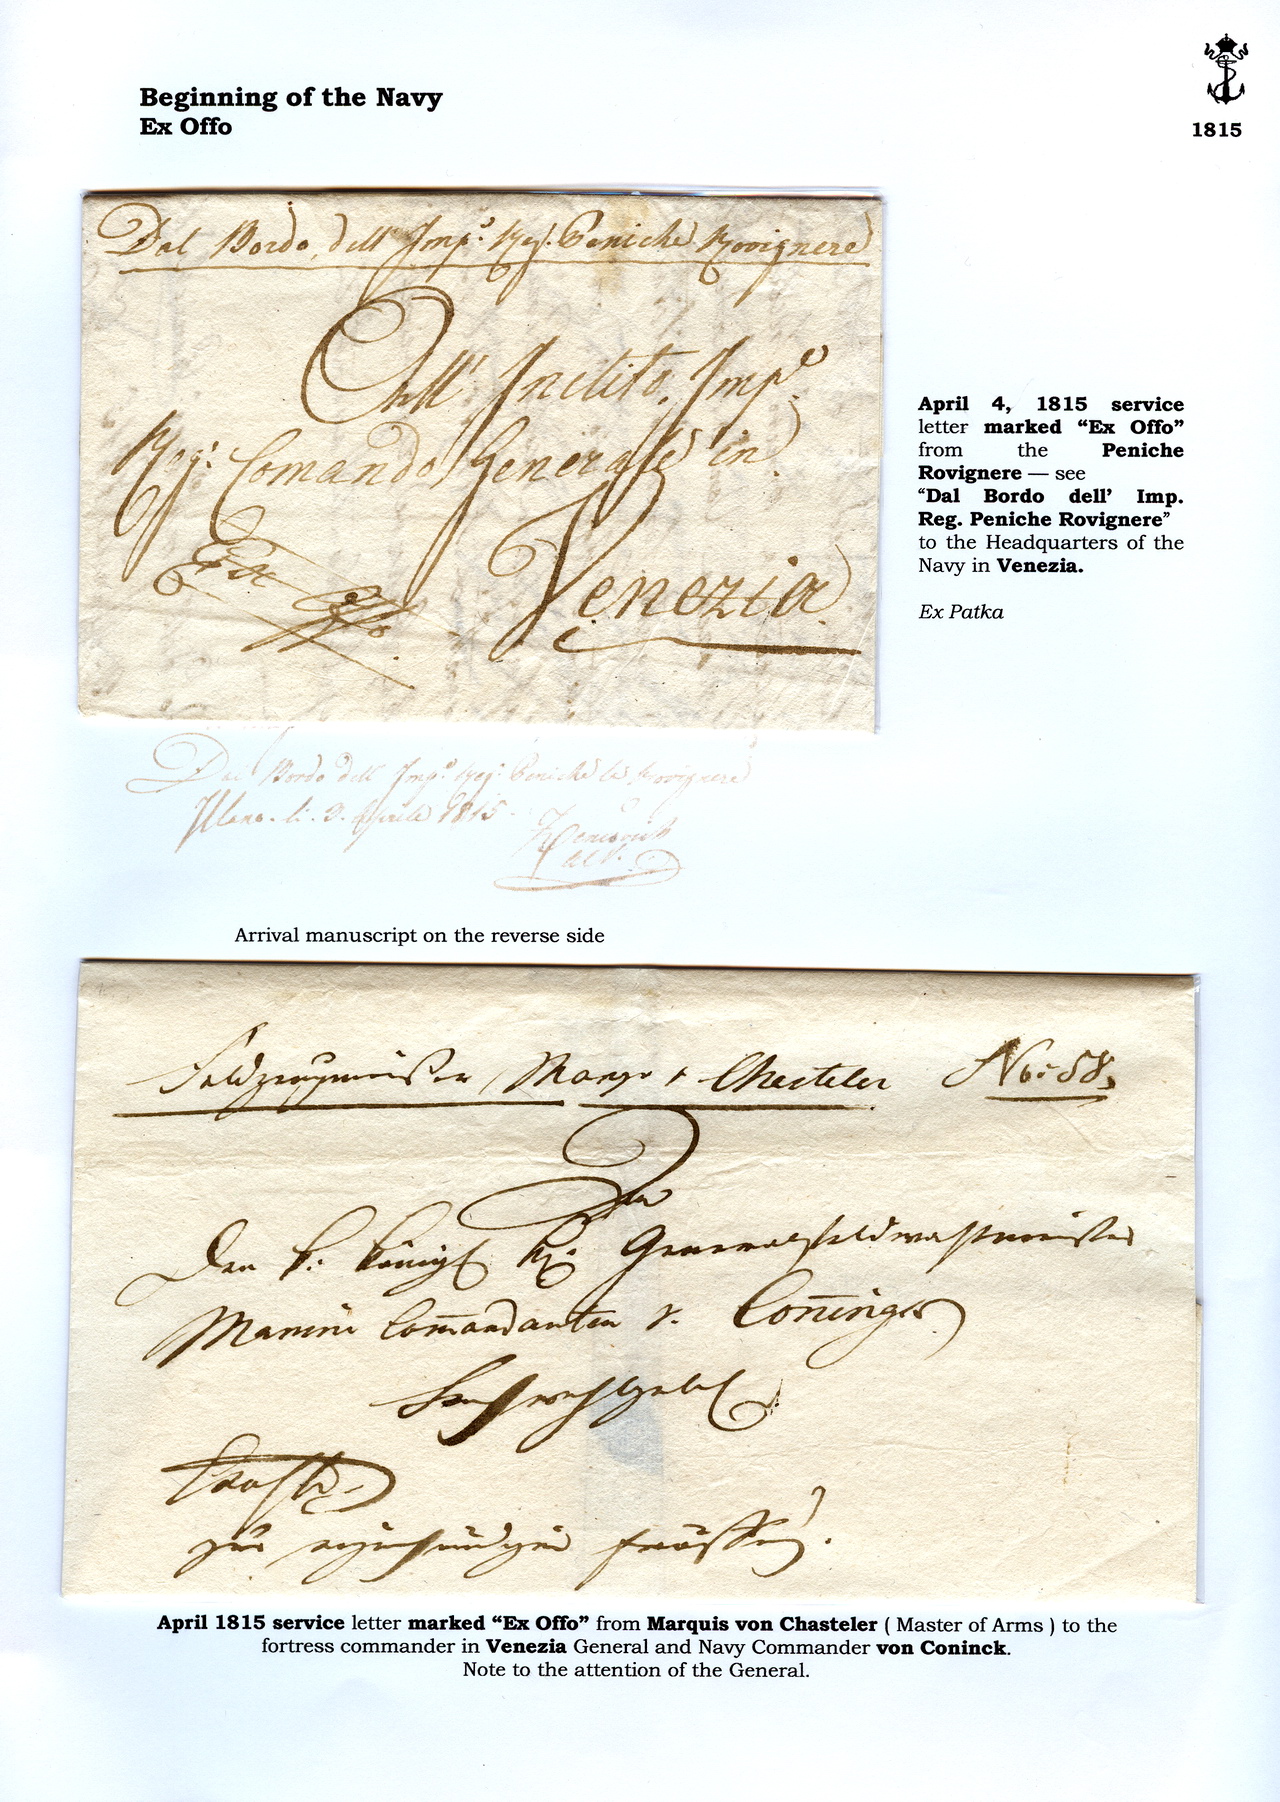 Beginning of the Navy
Ex Offo
1815
Dal Bordo dell' Imp.e Reg. Peniche Rovignere
All' Inclito Imp.e
Reg: Comando Generale in
Venezia
Ex Offo
April 4, 1815 service
letter marked “Ex Offo”
from the Peniche
Rovignere — see
“Dal Bordo dell’ Imp.
Reg. Peniche Rovignere”
to the Headquarters of the
Navy in Venezia.
Ex Patka
Dal Bordo dell Imp.e Reg: Peniche la Rovignere
li. 3. Aprile 1815.
Arrival manuscript on the reverse side
Feldzeugmeister Marq. v Chasteler No: 58,
An
Den k: königl Hn: Generalfeldwachtmeister
Marine Commandanten v. Conninger
Hochwohlgeb
zur eigenhändigen Eröffnung.
April 1815 service letter marked “Ex Offo” from Marquis von Chasteler ( Master of Arms ) to the
fortress commander in Venezia General and Navy Commander von Coninck.
Note to the attention of the General.